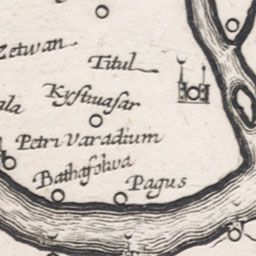 Zetwan
Titul
Kystuasar
ala
Petri varadium
Bathafolwa
Pagus